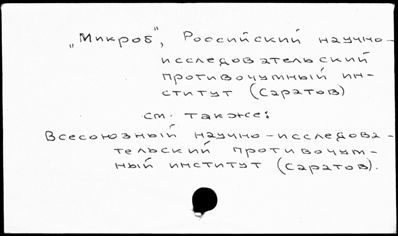 „Микроб“, Российский научно-
исследовательский
противочумный ин-
ститут (Саратов)
см. также:
Всесоюзный научно-исследова-
тельский противочум-
ный институт (Саратов).